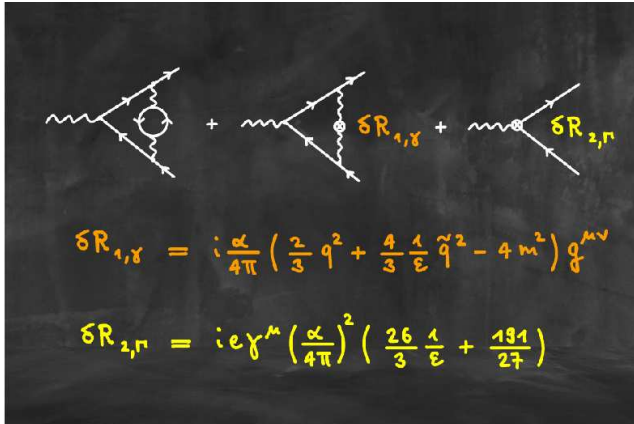 + δR₁,γ + δR₂,Γ
δR₁,γ = i α/4π ( 2/3 q² + 4/3 1/ε q̃² − 4 m² ) g^μν
δR₂,Γ = i e γ^μ ( α/4π )² ( 26/3 1/ε + 191/27 )